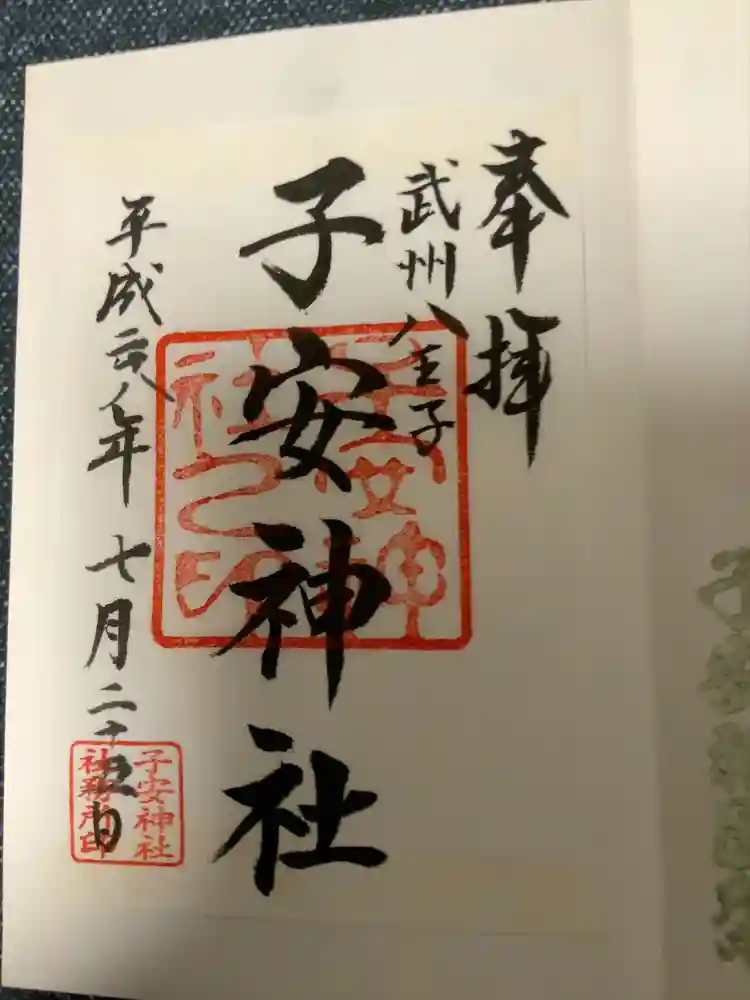 奉拝
武州八王子
子安神社
平成二八年七月二十五日
子安神社
社務所印
子安神
社之印